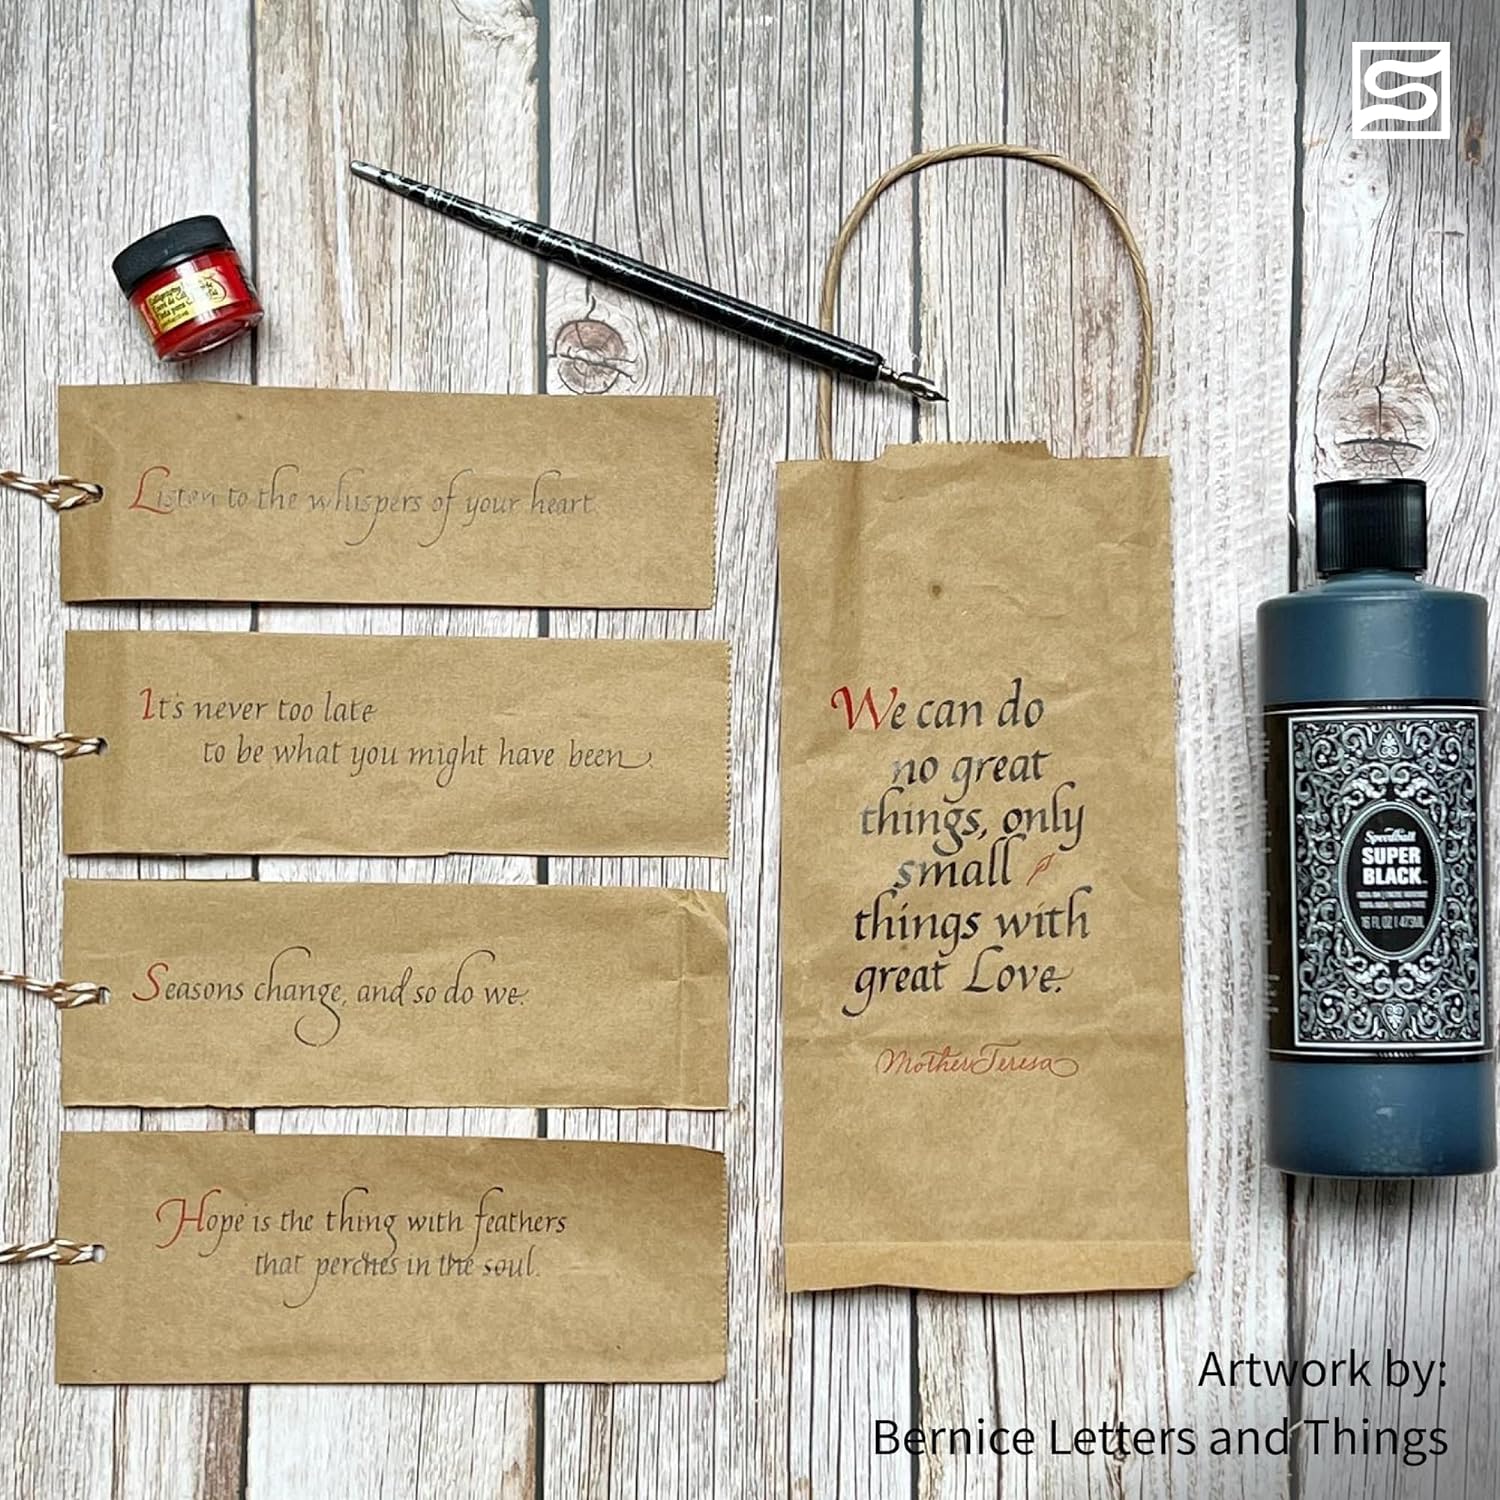 Listen to the whispers of your heart.
It's never too late
to be what you might have been.
Seasons change, and so do we.
Hope is the thing with feathers
that perches in the soul.
We can do
no great
things, only
small
things with
great Love.
Mother Teresa
Speedball
SUPER
BLACK
16 FL OZ | 473ML
Artwork by:
Bernice Letters and Things